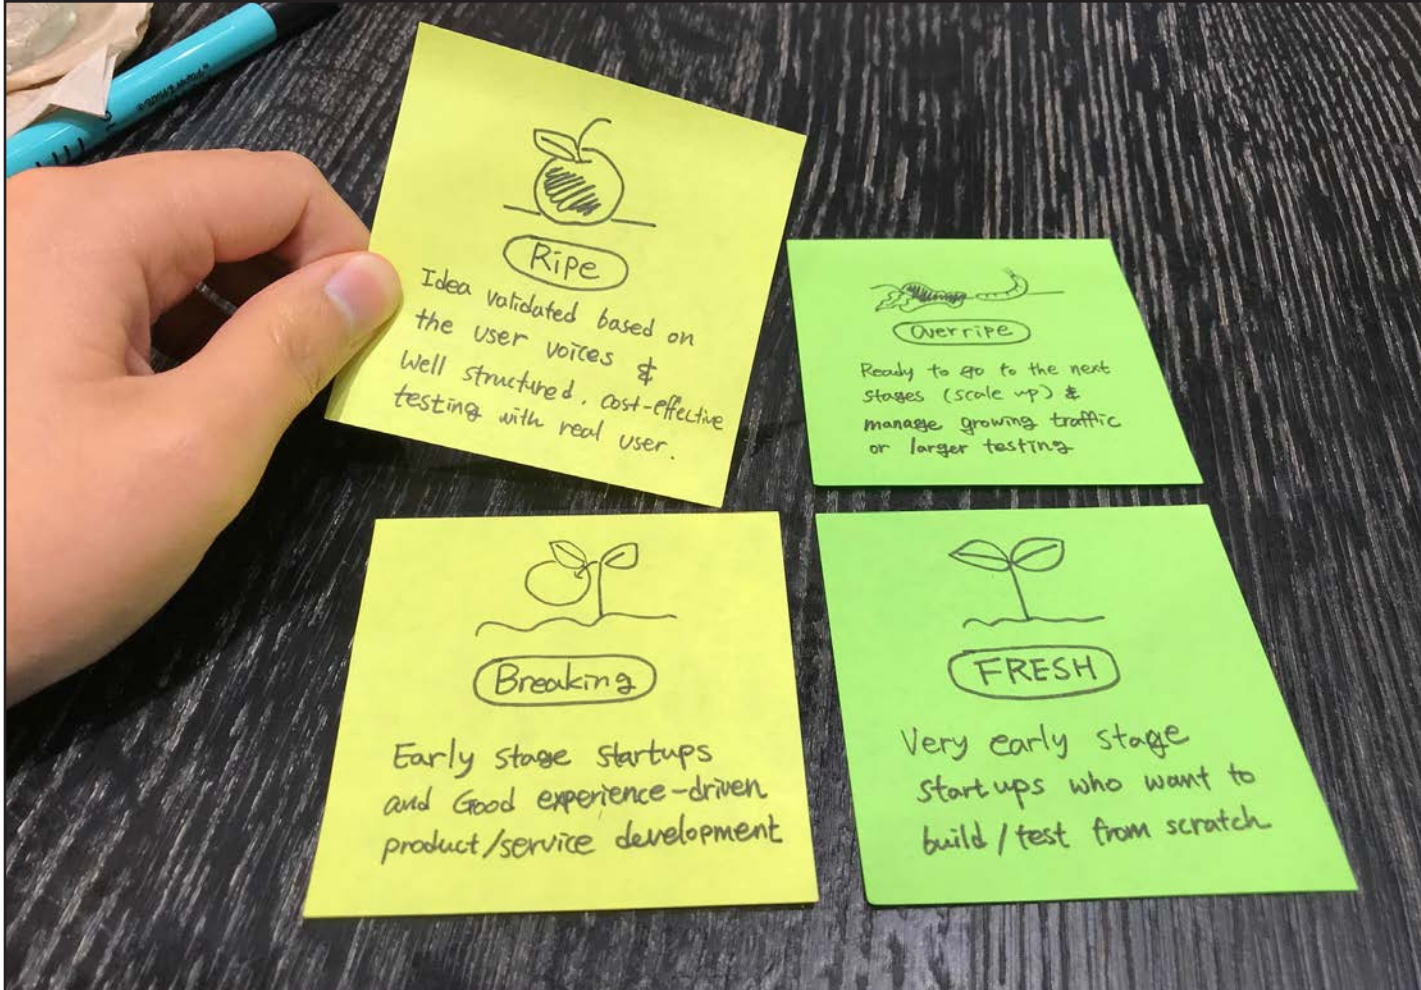 Ripe
Idea validated based on
the user voices &
Well structured. cost-effective
testing with real user.
Overripe
Ready to go to the next
stages (scale up) &
manage growing traffic
or larger testing
Breaking
Early stage startups
and Good experience-driven
product/service development
FRESH
Very early stage
startups who want to
build/test from scratch